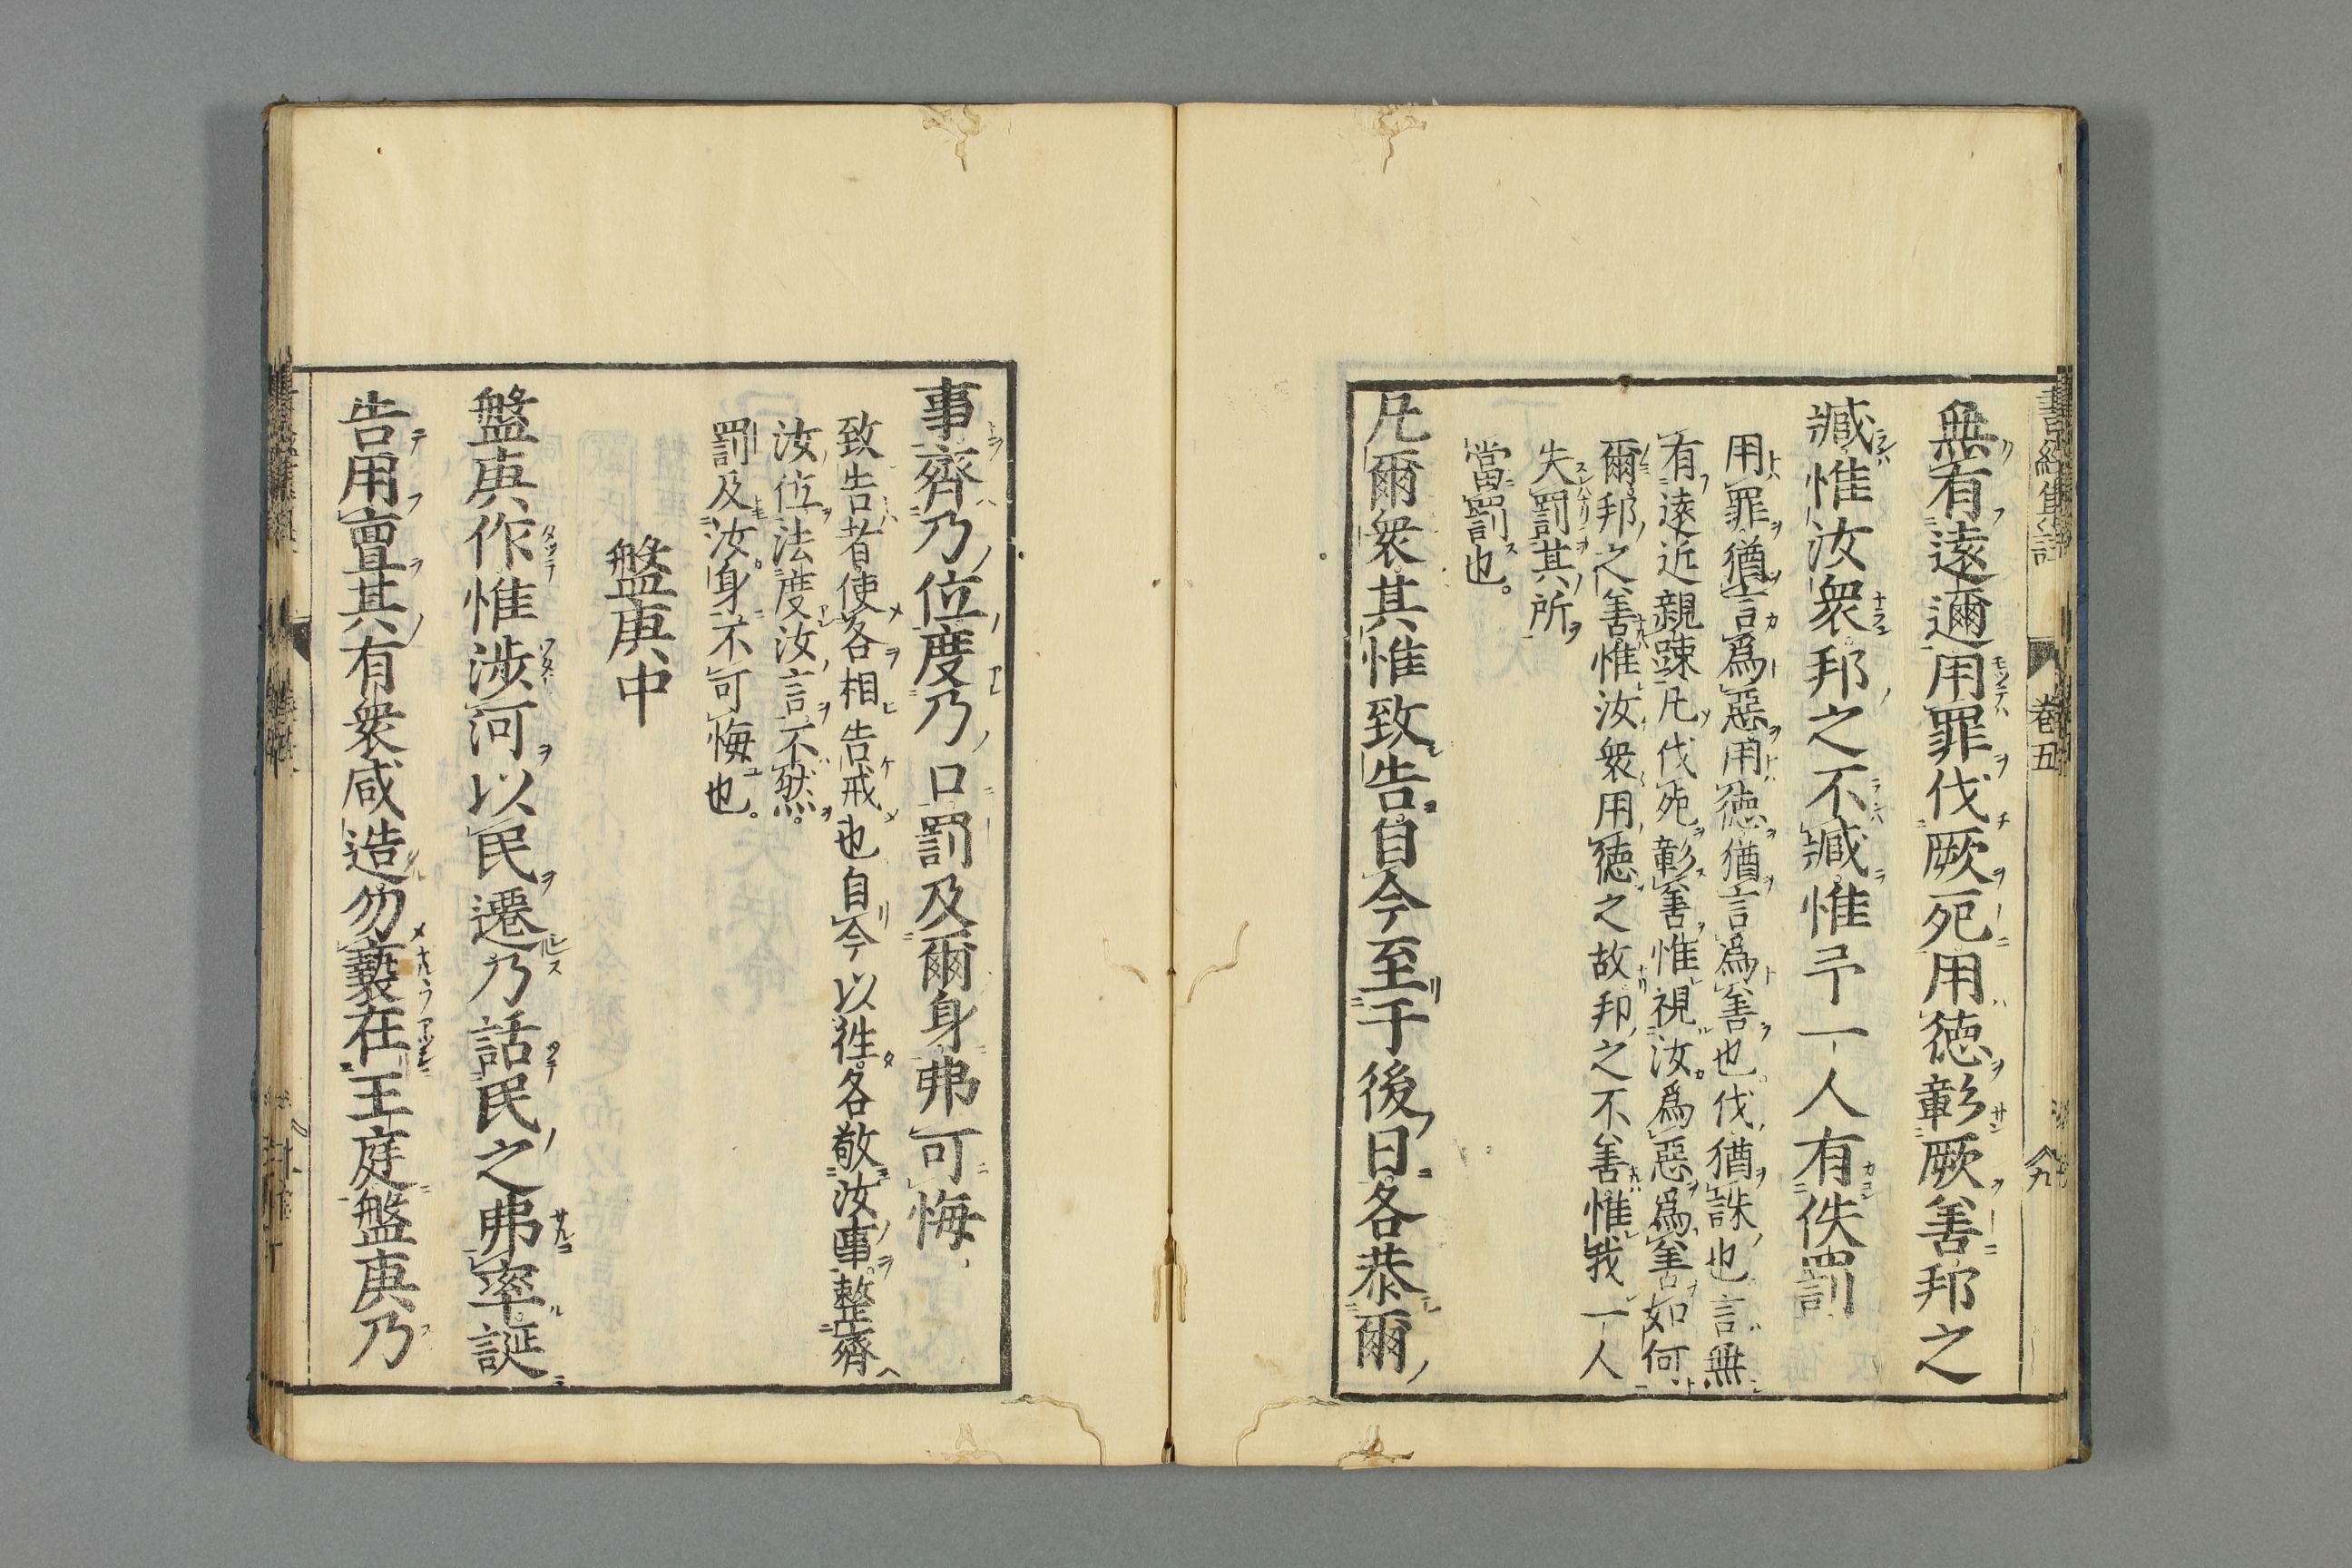 無有遠邇用罪伐厥死用德彰厥善邦之
臧惟汝衆邦之不臧惟予一人有佚罰
用罪猶言爲惡用德猶言爲善也伐猶誅也言無
有遠近親踈凡伐死彰善惟視汝爲惡爲善如何
爾邦之善惟汝衆用德之故邦之不善惟我一人
失罰其所
當罰也。
凡爾衆其惟致告自今至于後日各恭爾
事齊乃位度乃口罰及爾身弗可悔
致告者使各相告戒也自今以徃各敬汝事整齊
汝位法度汝言不然。
罰及汝身不可悔也。
盤庚中
盤庚作惟涉河以民遷乃話民之弗率誕
告用亶其有衆咸造勿褻在王庭盤庚乃
卷五
九